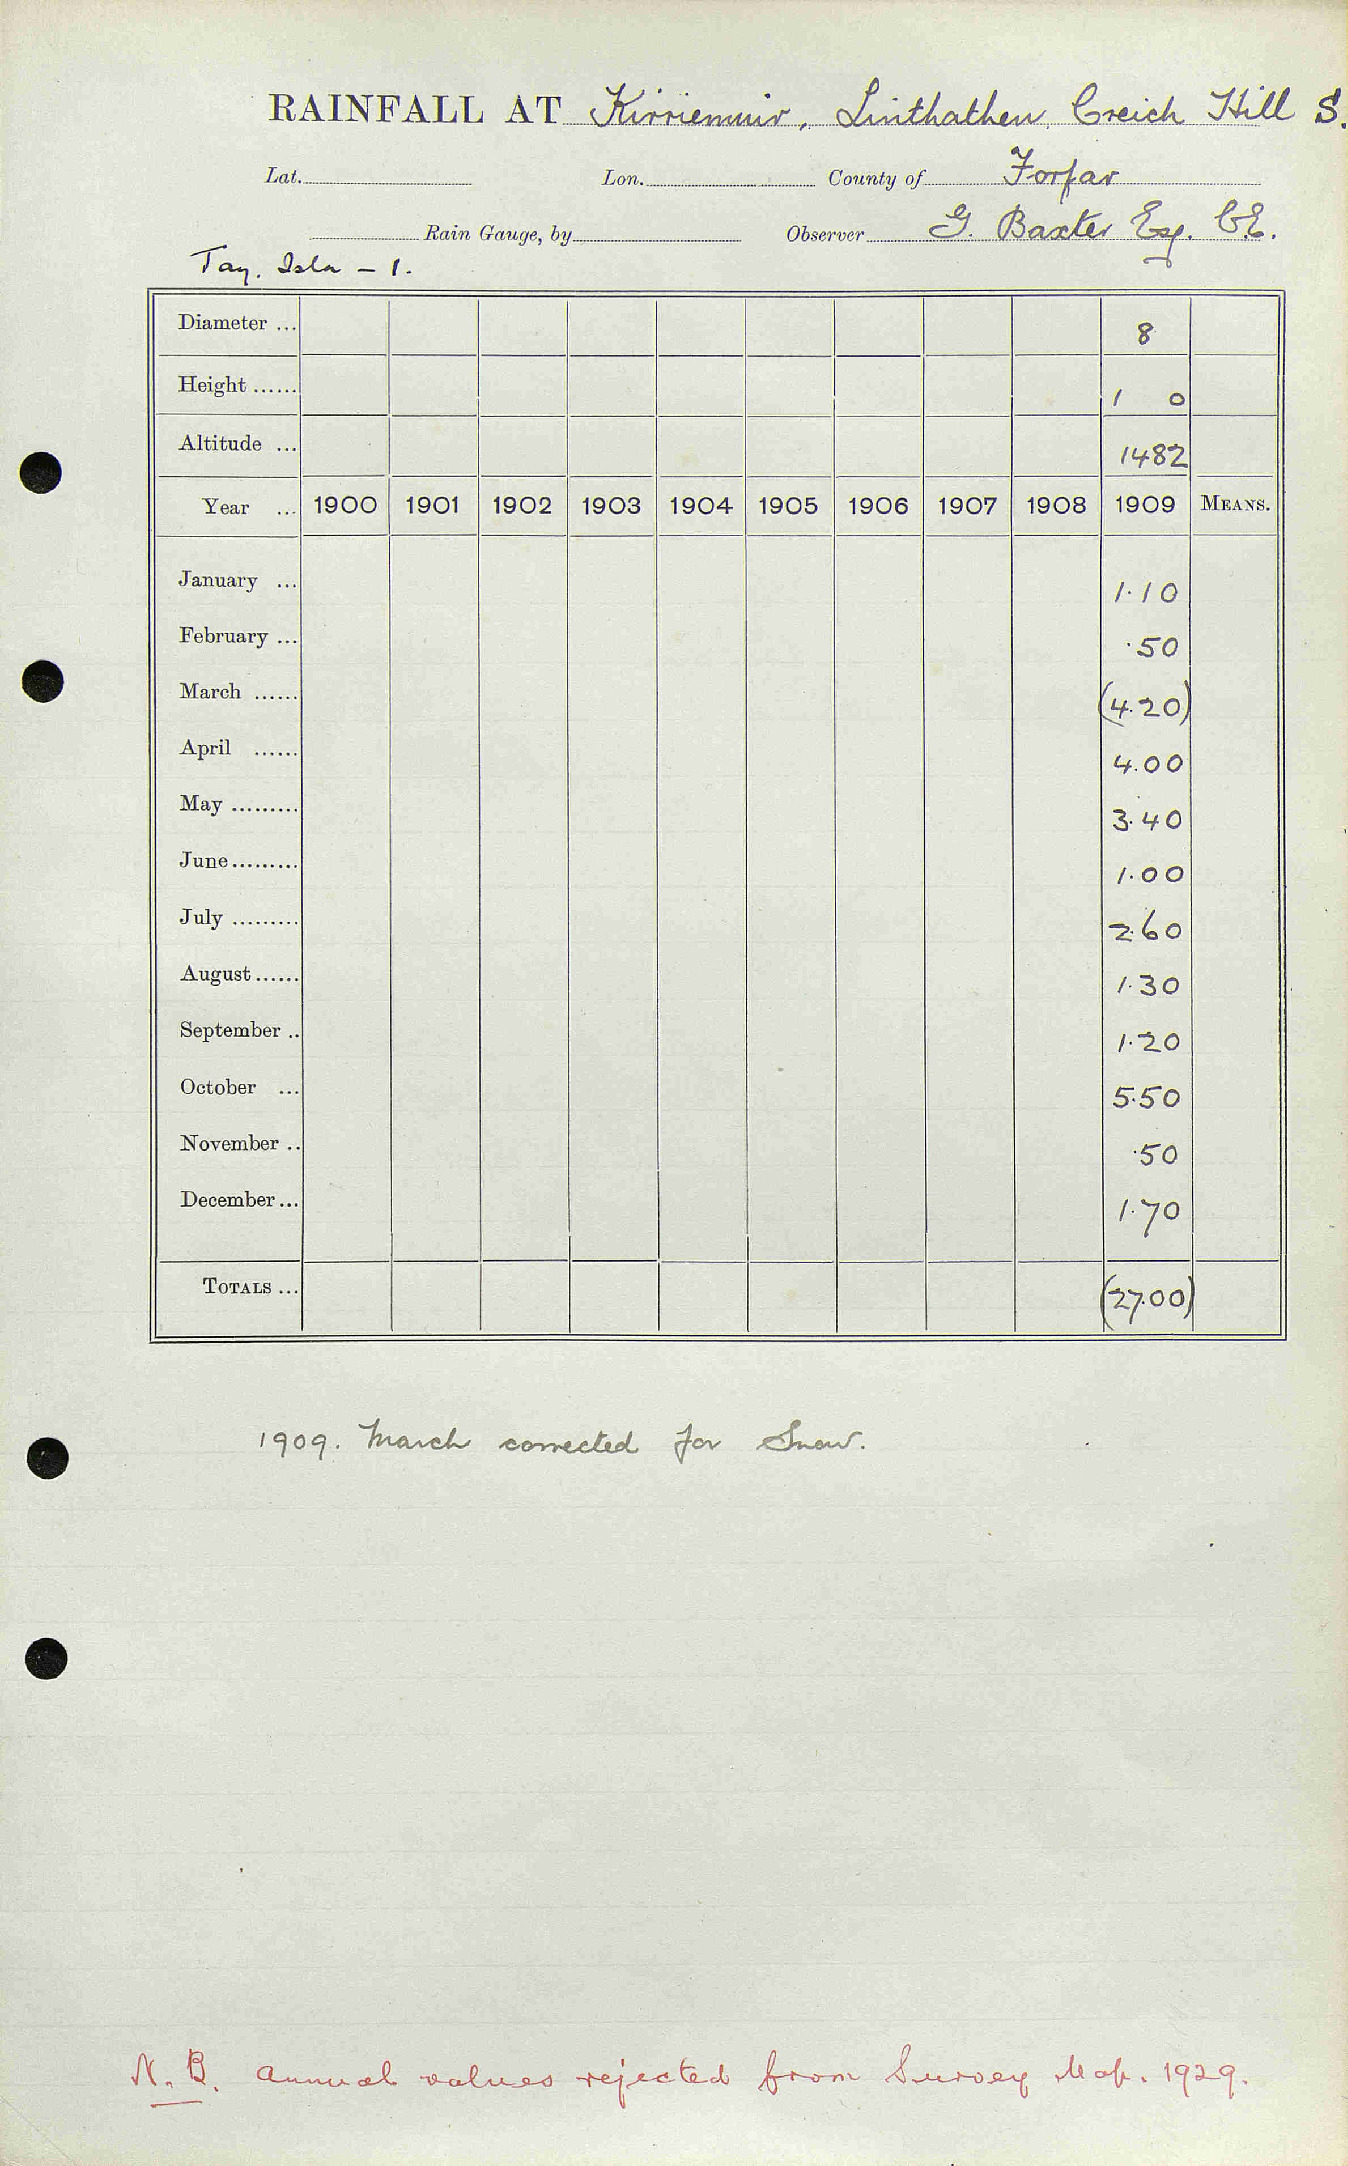 RAINFALL AT Kirriemuir, Linthathen, Creich Hill S.
Lat. Lon. County of Forfar
Rain Gauge, by Observer G. Baxter Esq. C.E.
Tay. Isla - 1.
Diameter ... 8
Height ...... 1 0
Altitude ... 1482
Year ... 1900 1901 1902 1903 1904 1905 1906 1907 1908 1909 MEANS.
January ... 1.10
February ... .50
March ...... (4.20)
April ...... 4.00
May ......... 3.40
June ......... 1.00
July ......... 2.60
August ...... 1.30
September .. 1.20
October ... 5.50
November .. .50
December ... 1.70
TOTALS ... (27.00)
1909. March corrected for Snow.
N.B. Annual values rejected from Survey Map. 1929.